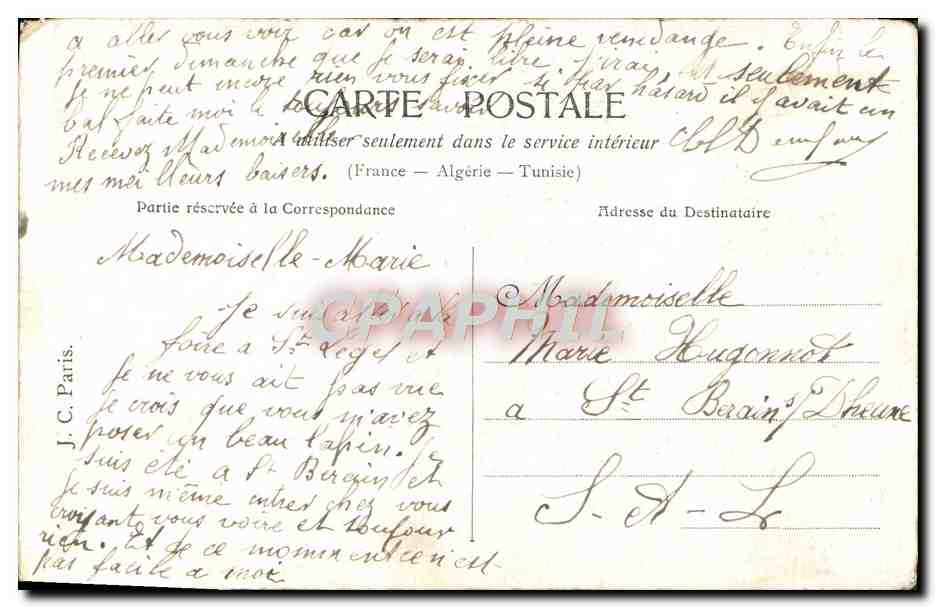 a aller vous voir car on est pleine vendange. Enfin le
premier dimanche que je serai libre j'irai et seulement
je ne peut encore rien vous fixer si par hasard il y avait un
bal faite moi a toujours savoir
Recevez Mademoiselle
mes meilleurs baisers.
CARTE POSTALE
A utiliser seulement dans le service intérieur
(France — Algérie — Tunisie)
Partie réservée à la Correspondance
Mademoiselle - Marie
Je suis allé a la
foire a St Leger et
je ne vous ait pas vue
je crois que vous m'avez
poser un beau lapin. Je
suis été a St Berain et
je suis même entrer chez vous
croyant vous voire et toujour
rien. Et de ce momment ce n'est
pas facile a moi
J. C. Paris.
Adresse du Destinataire
Mademoiselle
Marie Hugonnot
a St Berain s/ Dheune
S - A - L
CPAPHIL